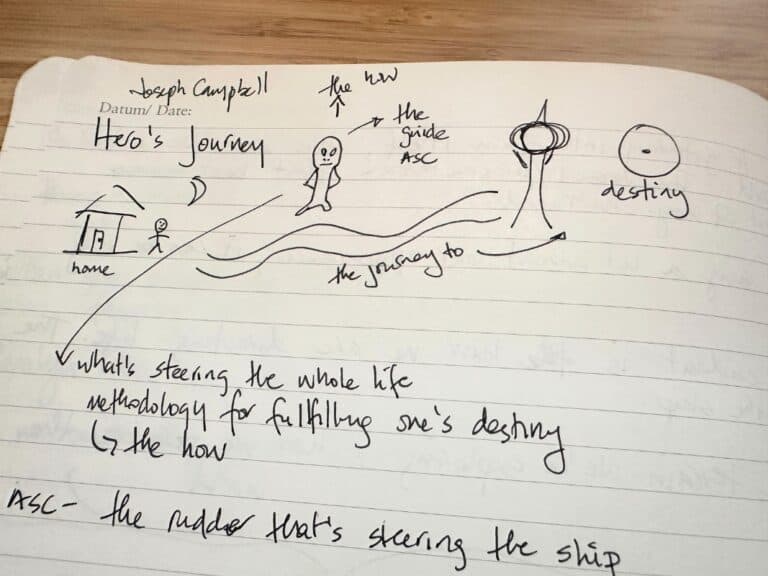 Joseph Campbell
Datum/ Date:
Hero's Journey
the how
the
guide
ASC
destiny
home
the journey to
what's steering the whole life
methodology for fulfilling one's destiny
↳ the how
ASC - the rudder that's steering the ship